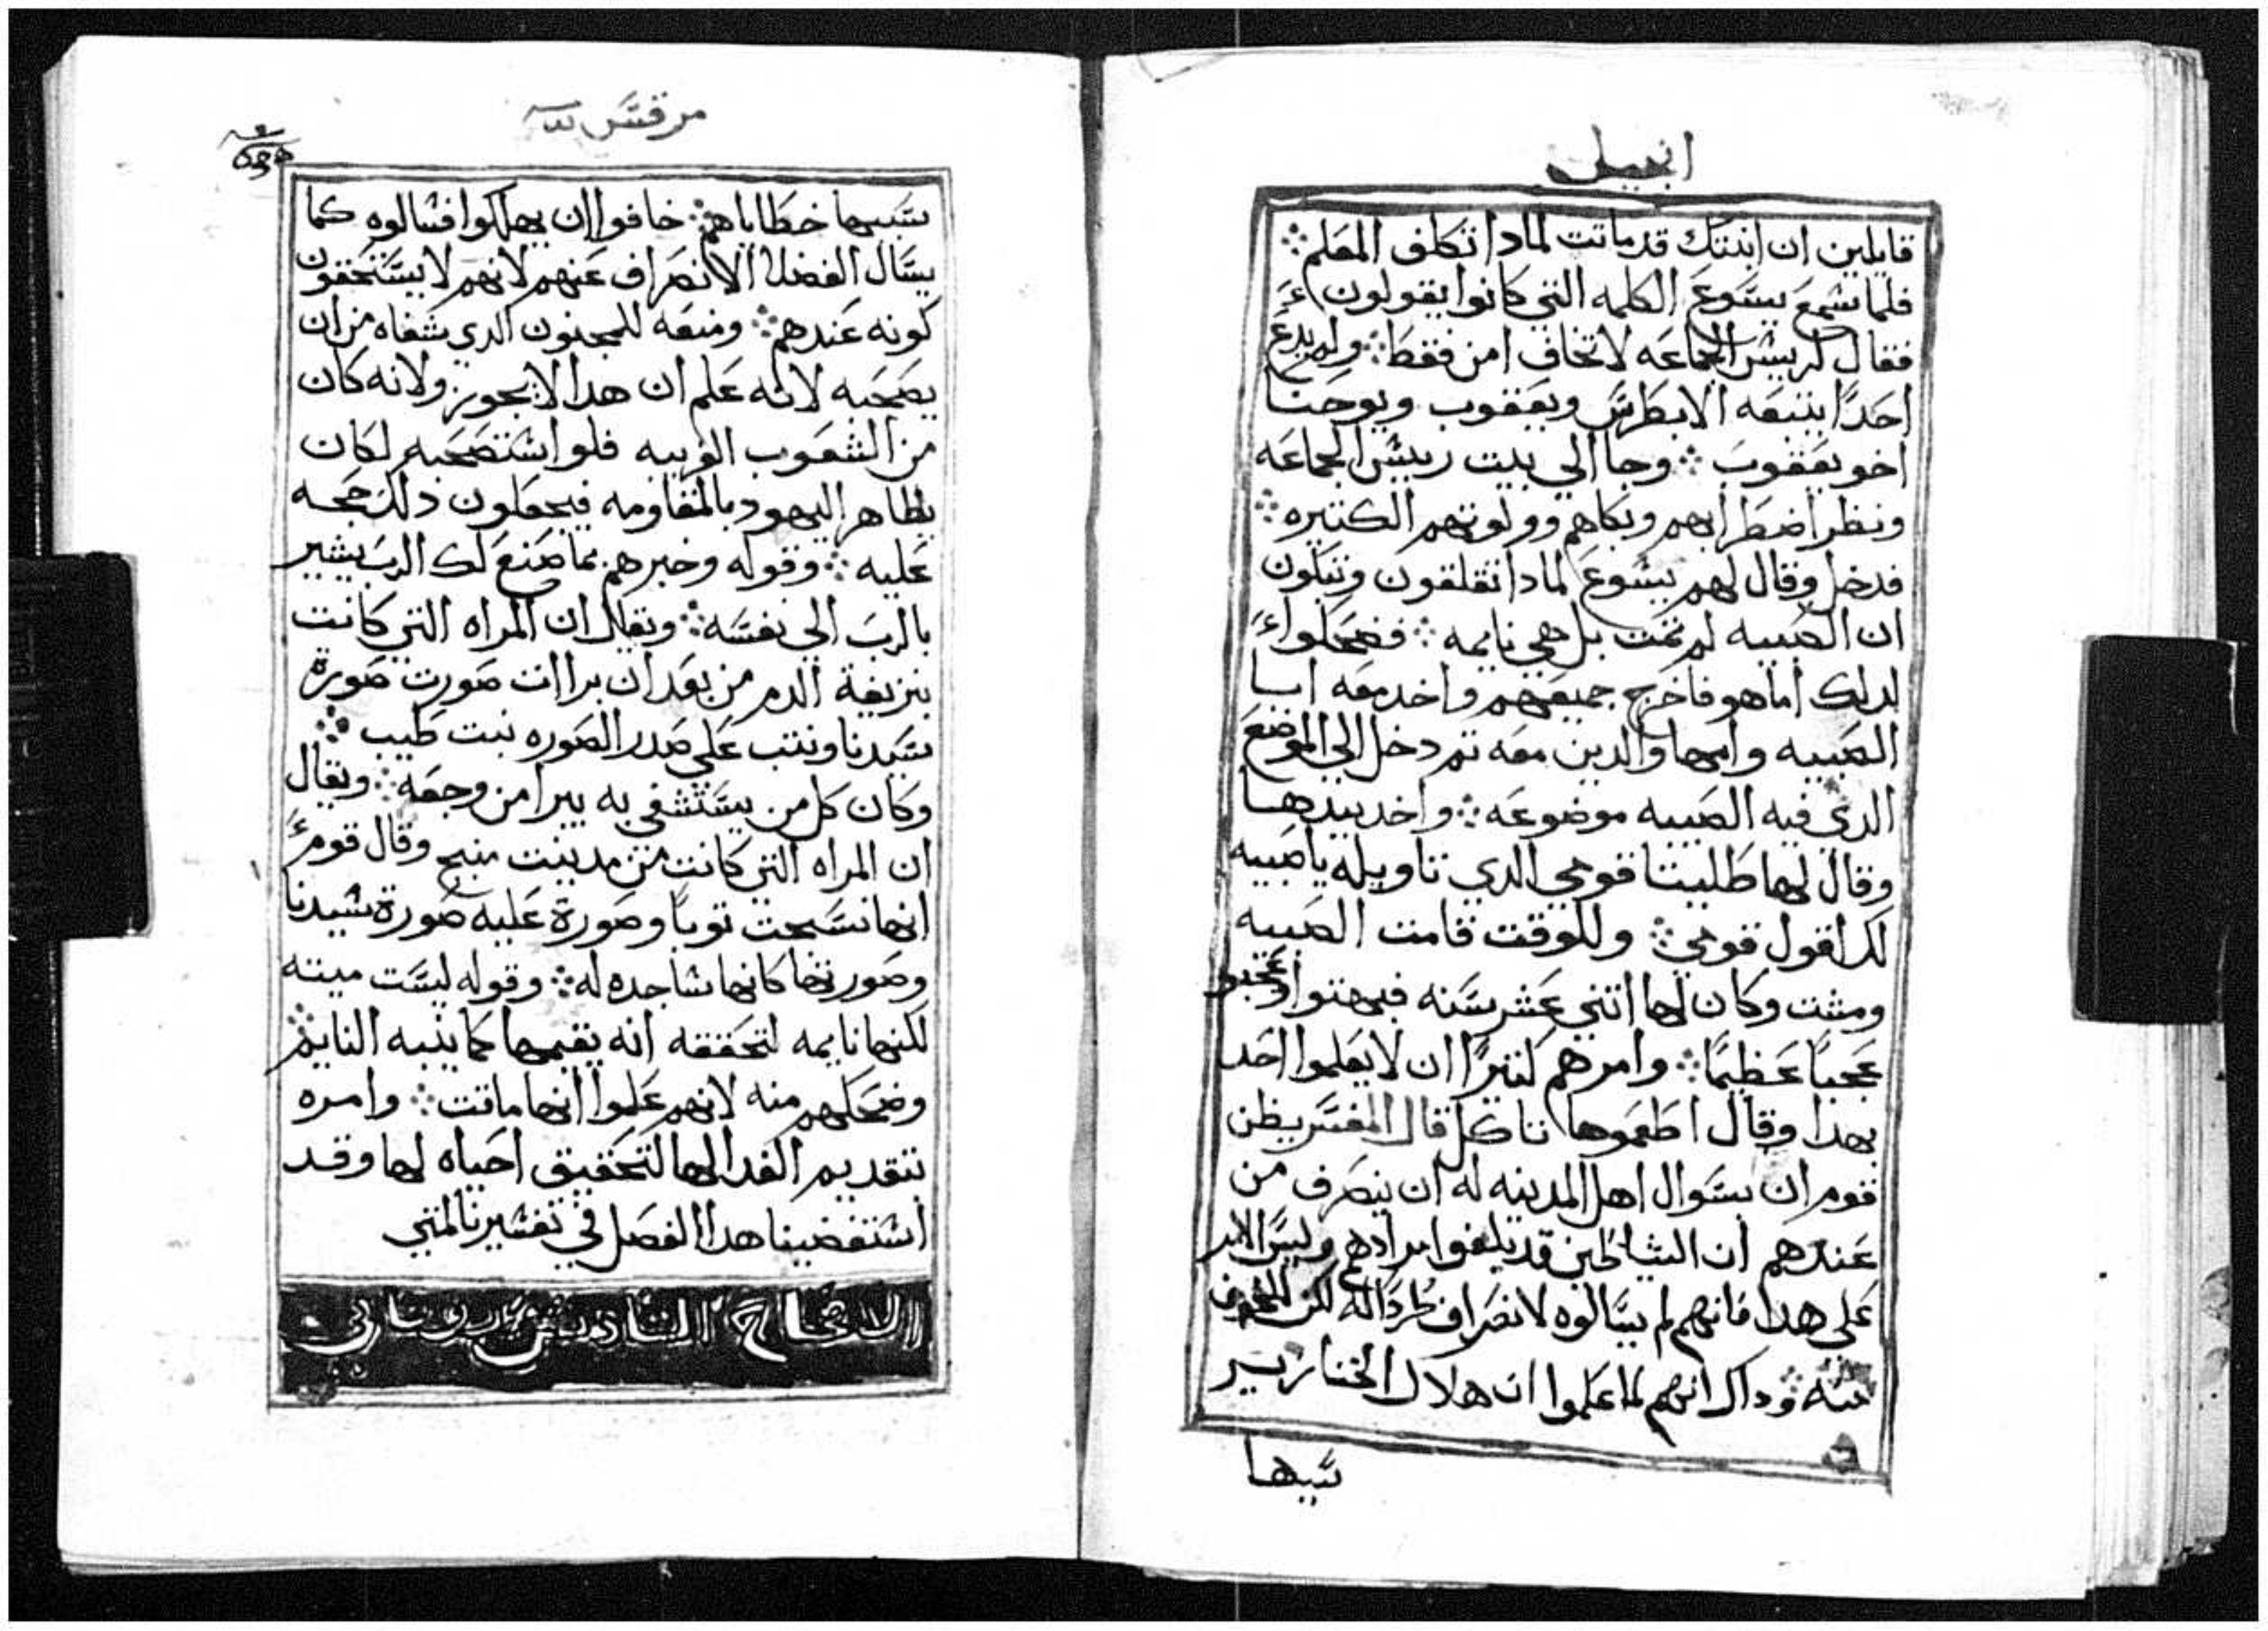 انجيل
قايلين ان ابنتك قد ماتت لمادا تكلف المعلم ؞
فلما سمع يسوع الكلمه التي كانوا يقولون
فقال لرييس الجماعه لا تخاف امن فقط ؞ ولم يدع
احدًا يتبعه الا بطرس ويعقوب ويوحنا
اخو يعقوب ؞ وجا الي بيت رييس الجماعه
ونظر اضطرابهم وبكاهم وولولتهم الكتيره ؞
فدخل وقال لهم يسوع لمادا تقلقون وتبكون
ان الصبيه لم تمت بل هي نايمه ؞ فضحكوا
لدلك اما هو فاخرج جميعهم واخد معه ابا
الصبيه وامها والدين معه تم دخل الي الموضع
الدي فيه الصبيه موضوعه ؞ واخد بيدها
وقال لها طليتا قومي الدي تاويله يا صبيه
لك اقول قومي ؞ وللوقت قامت الصبيه
ومشت وكان لها اتني عشر سنه فبهتوا وتعجبو
عجبًا عظيمًا ؞ وامرهم كتيرًا ان لا يعلموا احد
بهدا وقال اطعموها تاكل قال المفسر يظن
قوم ان سوال اهل المدينه له ان ينصرف من
عندهم ان الشياطين قد بلغوا مرادهم وليس الامر
علي هدا فانهم لم يسالوه لانصراف طردًا له لكن للخوف
منه ؞ وداك انهم لما علموا ان هلاك الخنازير
سببها
مرقس
بسببها خطاياهم ؞ خافوا ان يهلكوا فسالوه كما
يسال الفضلا الانصراف عنهم لانهم لا يستحقون
كونه عندهم ؞ ومنعه للمجنون الدي شفاه من ان
يصحبه لانه علم ان هدا لا يجوز ولانه كان
من الشعوب الغريبه فلو استصحبه لكان
يظاهر اليهود بالمقاومه فيجعلون دلك حجه
عليه ؞ وقوله وخبرهم بما صنع لك الرب يشير
بالرب الي نفسه ؞ ويقال ان المراه التي كانت
بنزيفة الدم من بعد ان برات صورت صورة
سيدنا ونبت علي صدر الصوره نبت طيب ؞
وكان كل من يستشفي به يبرا من وجعه ؞ ويقال
ان المراه التي كانت من مدينت منبج وقال قوم
انها نسجت توبًا وصورة عليه صورة سيدنا
وصورتها كانها ساجده له ؞ وقوله ليست ميته
لكنها نايمه لتحققه انه يقيمها كما ينبه النايم
وضحكهم منه لانهم علموا انها ماتت ؞ وامره
بتقديم الغدا لها لتحقيق احياه لها وقد
استقضينا هدا الفصل في تفسيرنا لمتي
الاصحاح السادس